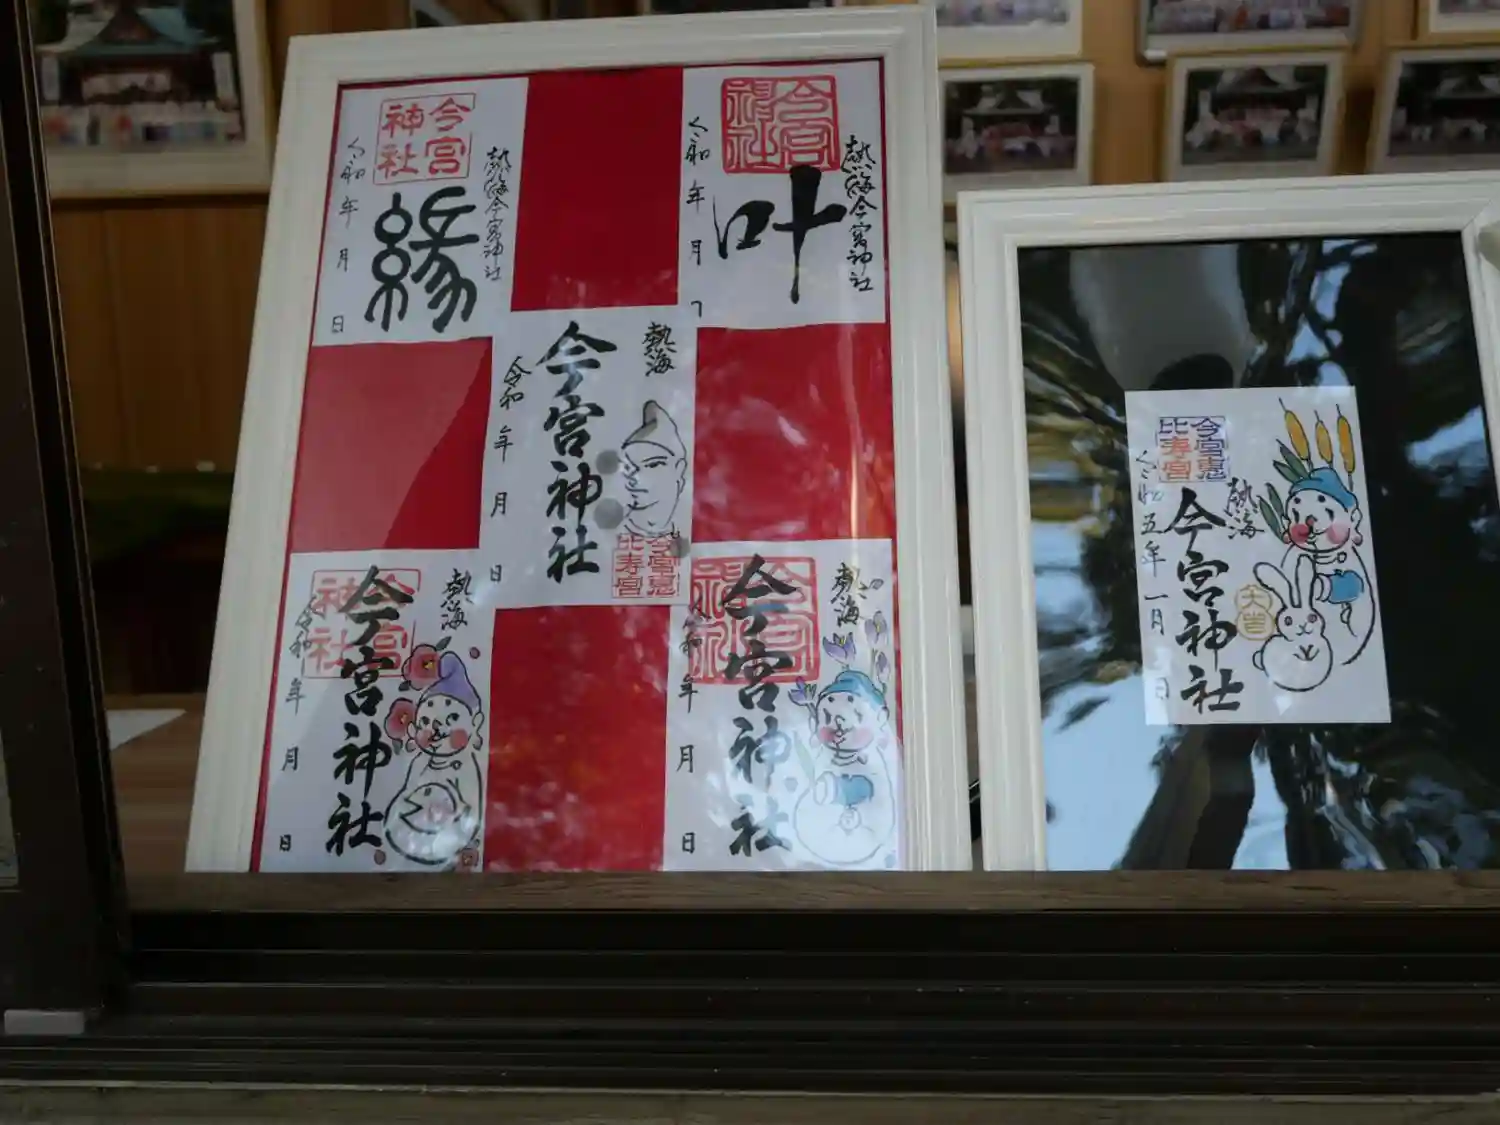 今宮
神社
熱海今宮神社
縁
令和 年 月 日
今宮
神社
熱海今宮神社
叶
令和 年 月
熱海
今宮神社
令和 年 月 日
今宮恵
比寿宮
熱海
今宮
神社
今宮神社
令和 年 月 日
熱海
今宮
神社
今宮神社
令和 年 月 日
今宮恵
比寿宮
熱海
今宮神社
令和五年 一月 日